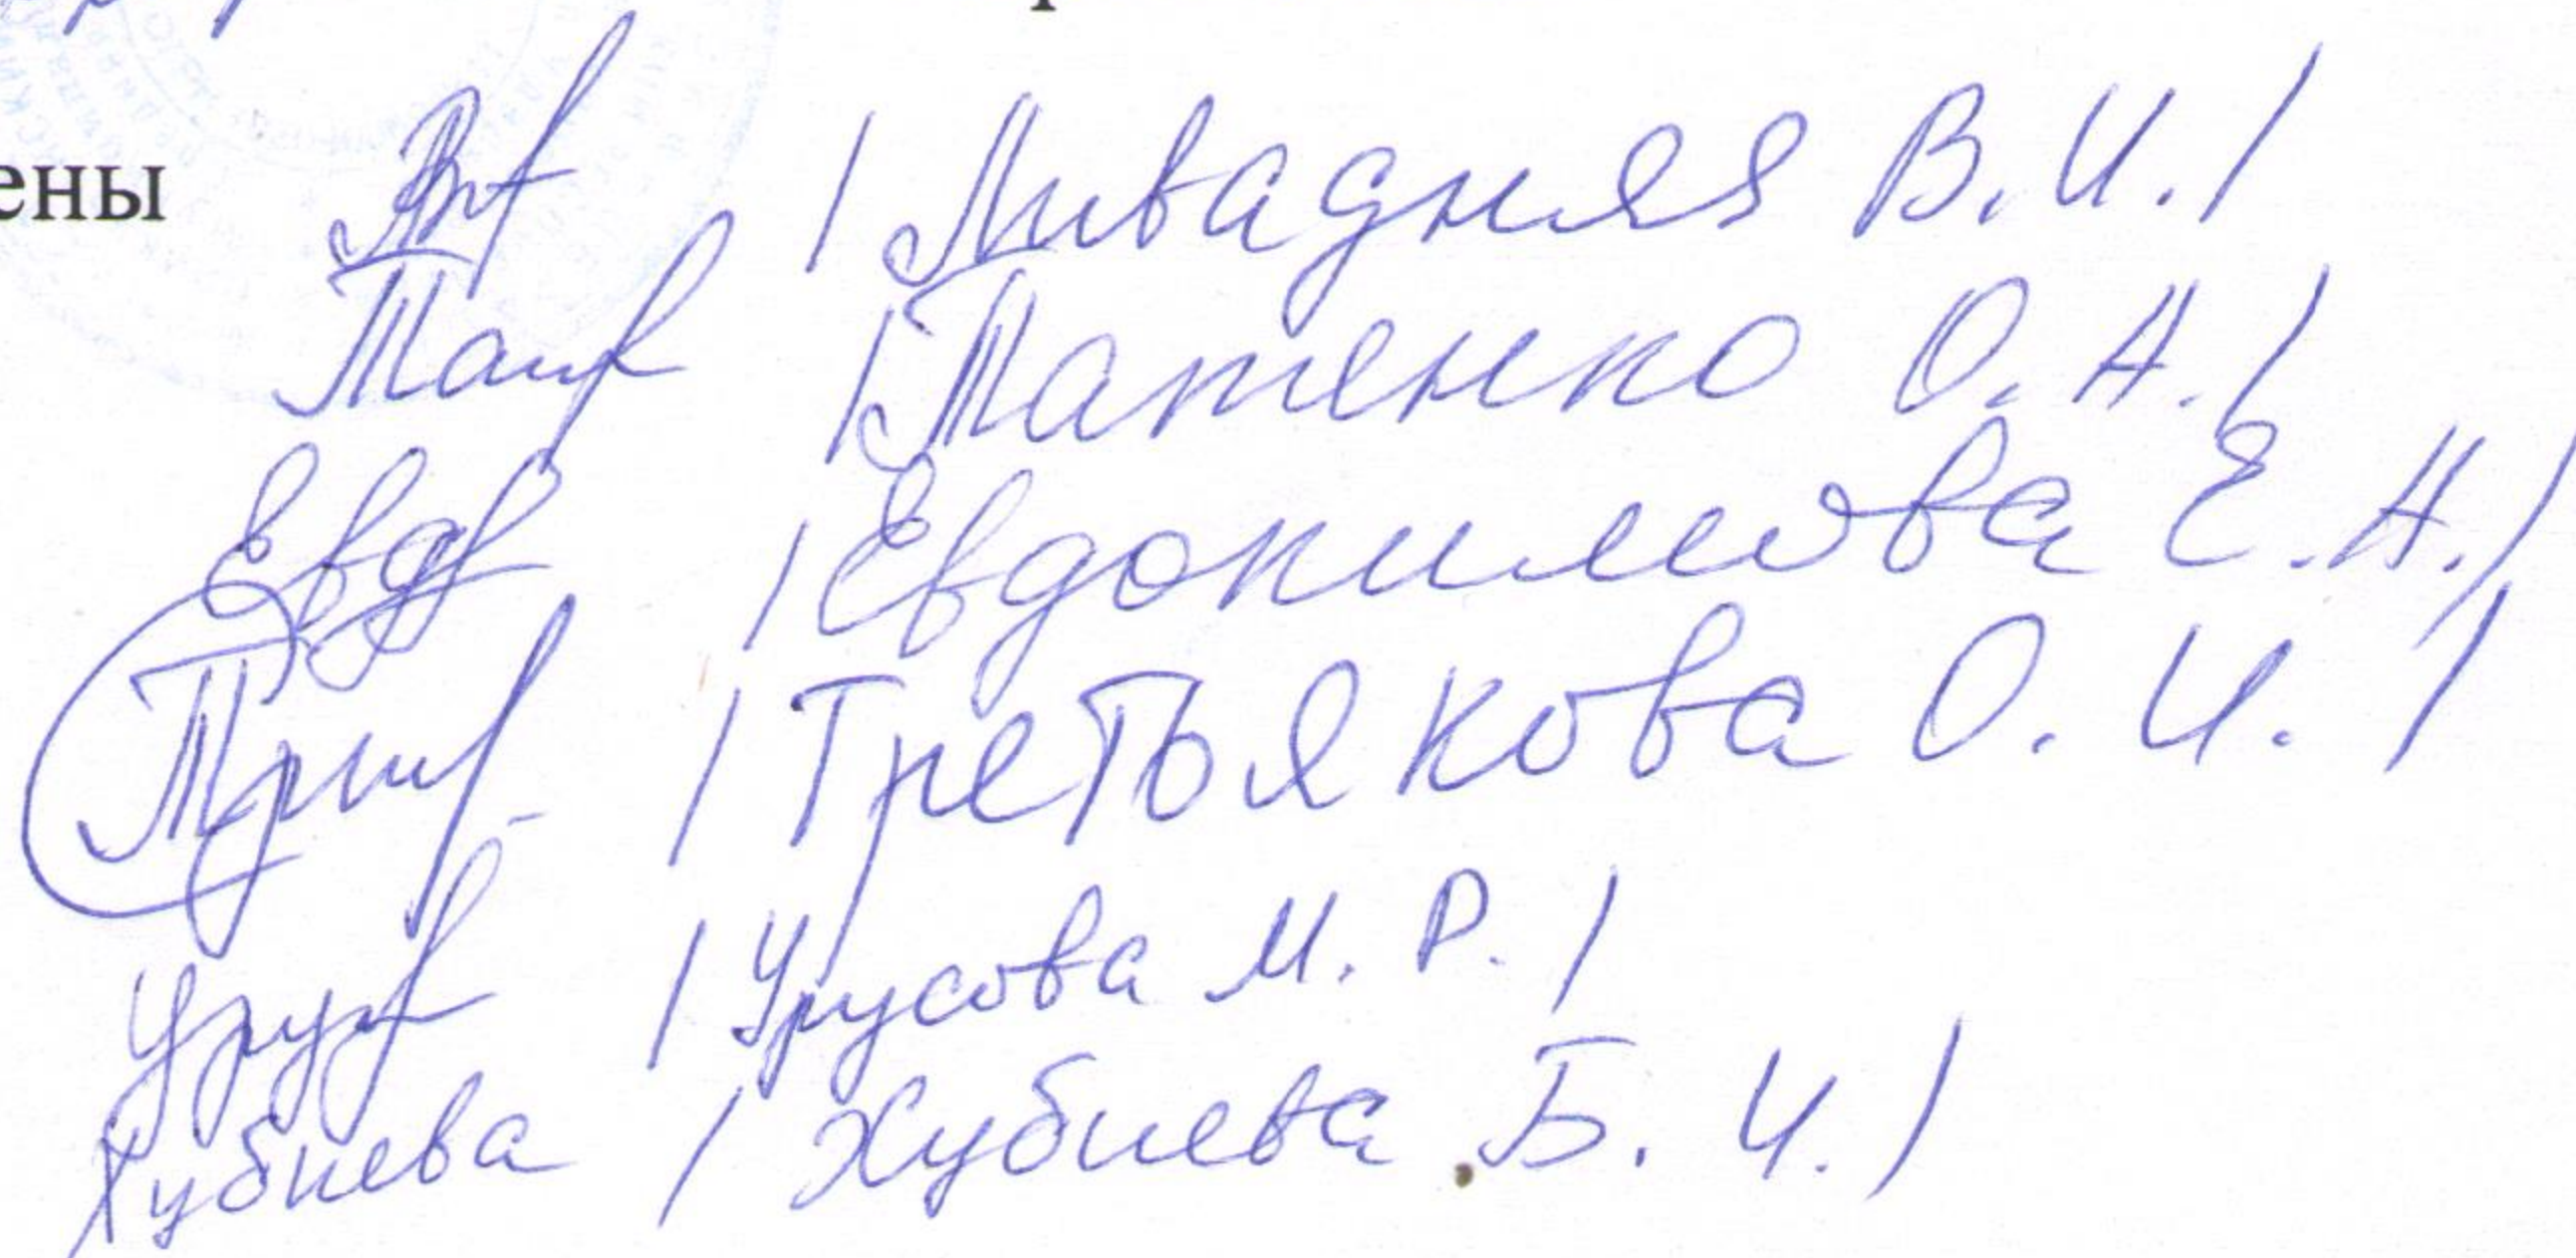 ены /Ливадняя В. И./
/Татенко О. А./
/Евдокимова Е. А./
/Третьякова О. И./
/Урусова М. Р./
Хубиева /Хубиева Б. И./